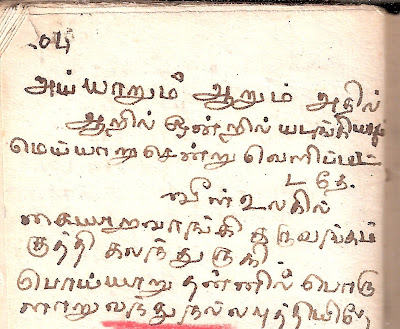 அய்யாறும் ஆறும் அதில்
ஆறில் ஒன்றில் யடங்கியும்
மெய்யாறு சென்று வெளிப்பட்
டதே.
வீள் உலகில்
கையாறவாங்கி தருவங்கம்
குத்தி கலந்துருகி.
பொய்யாறு தன்னில் பொரு
ளாறு வந்து நல்ல புத்தியிதே